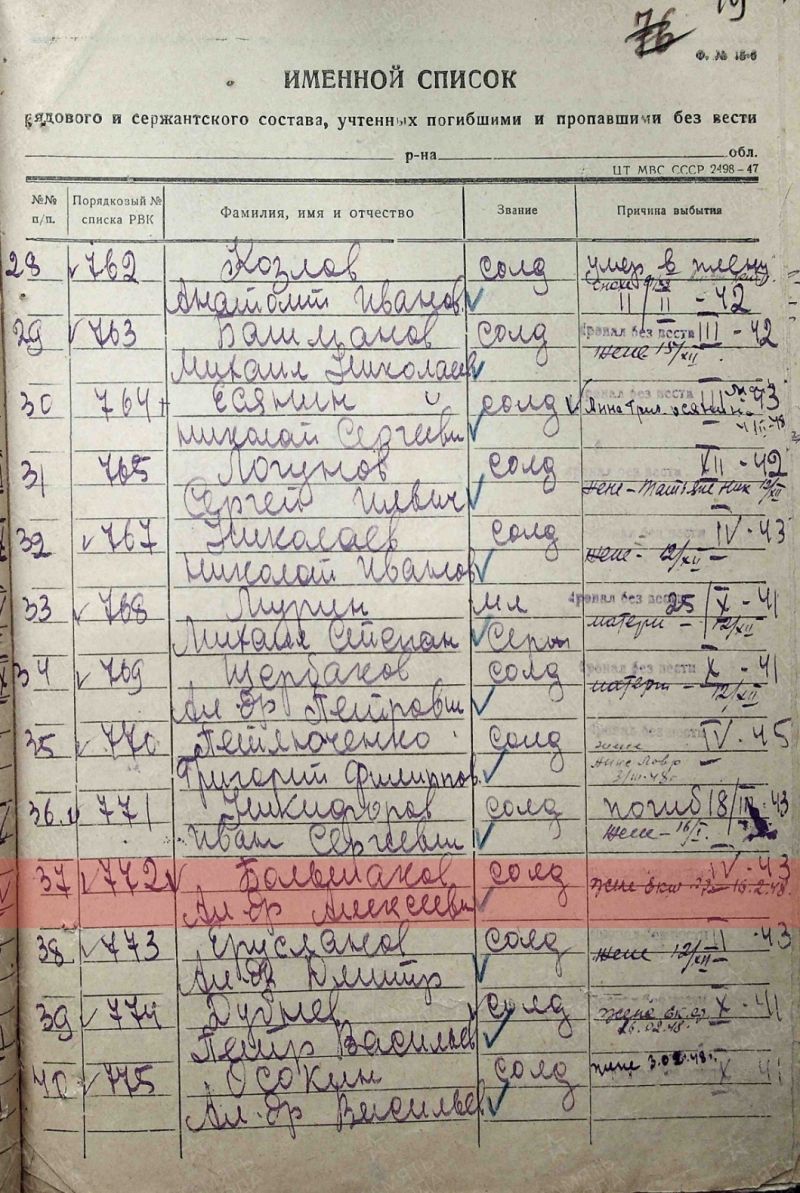 76
19
Ф. № 15-6
ИМЕННОЙ СПИСОК
рядового и сержантского состава, учтенных погибшими и пропавшими без вести
р-на обл.
ЦТ МВС СССР 2498-47
№№ п/п. Порядковый № списка РВК Фамилия, имя и отчество Звание Причина выбытия
28 762 Козлов солд умер в плену
Анатолий Иванов. 11/II - 42
29 763 солд пропал без вести III - 42
Михаил Николаев жене 15/XII
30 764 Есянин солд пропал без вести III - 43
Николай Сергеевич
31 765 Логунов солд XII - 42
Сергей Ильвич жене - 12/XII
32 767 Николаев солд IV - 43
Николай Иванов жене - 12/XII
33 768 Мурин мл пропал без вести 25/X - 41
Михаил Степан Серж матери - 12/XII
34 769 Щербаков солд пропал без вести X - 41
Ал-др Петрович матери - 12/XII
35 770 Петляюченко солд IV - 45
Григорий Филиппов.
36. 771 Никифоров солд погиб 18/III - 43
Иван Сергеевич жене - 16/I
37 772 Большаков солд IV - 43
Ал-др Алексеевич жене
38 773 Ерусланов солд II - 43
Ал-др Дмитр жене 12/XII
39 774 Дубнев солд X - 41
Петр Васильев 26.02.48.
40 775 Осокин солд X - 41
Ал-др Васильев 3.02.48г.